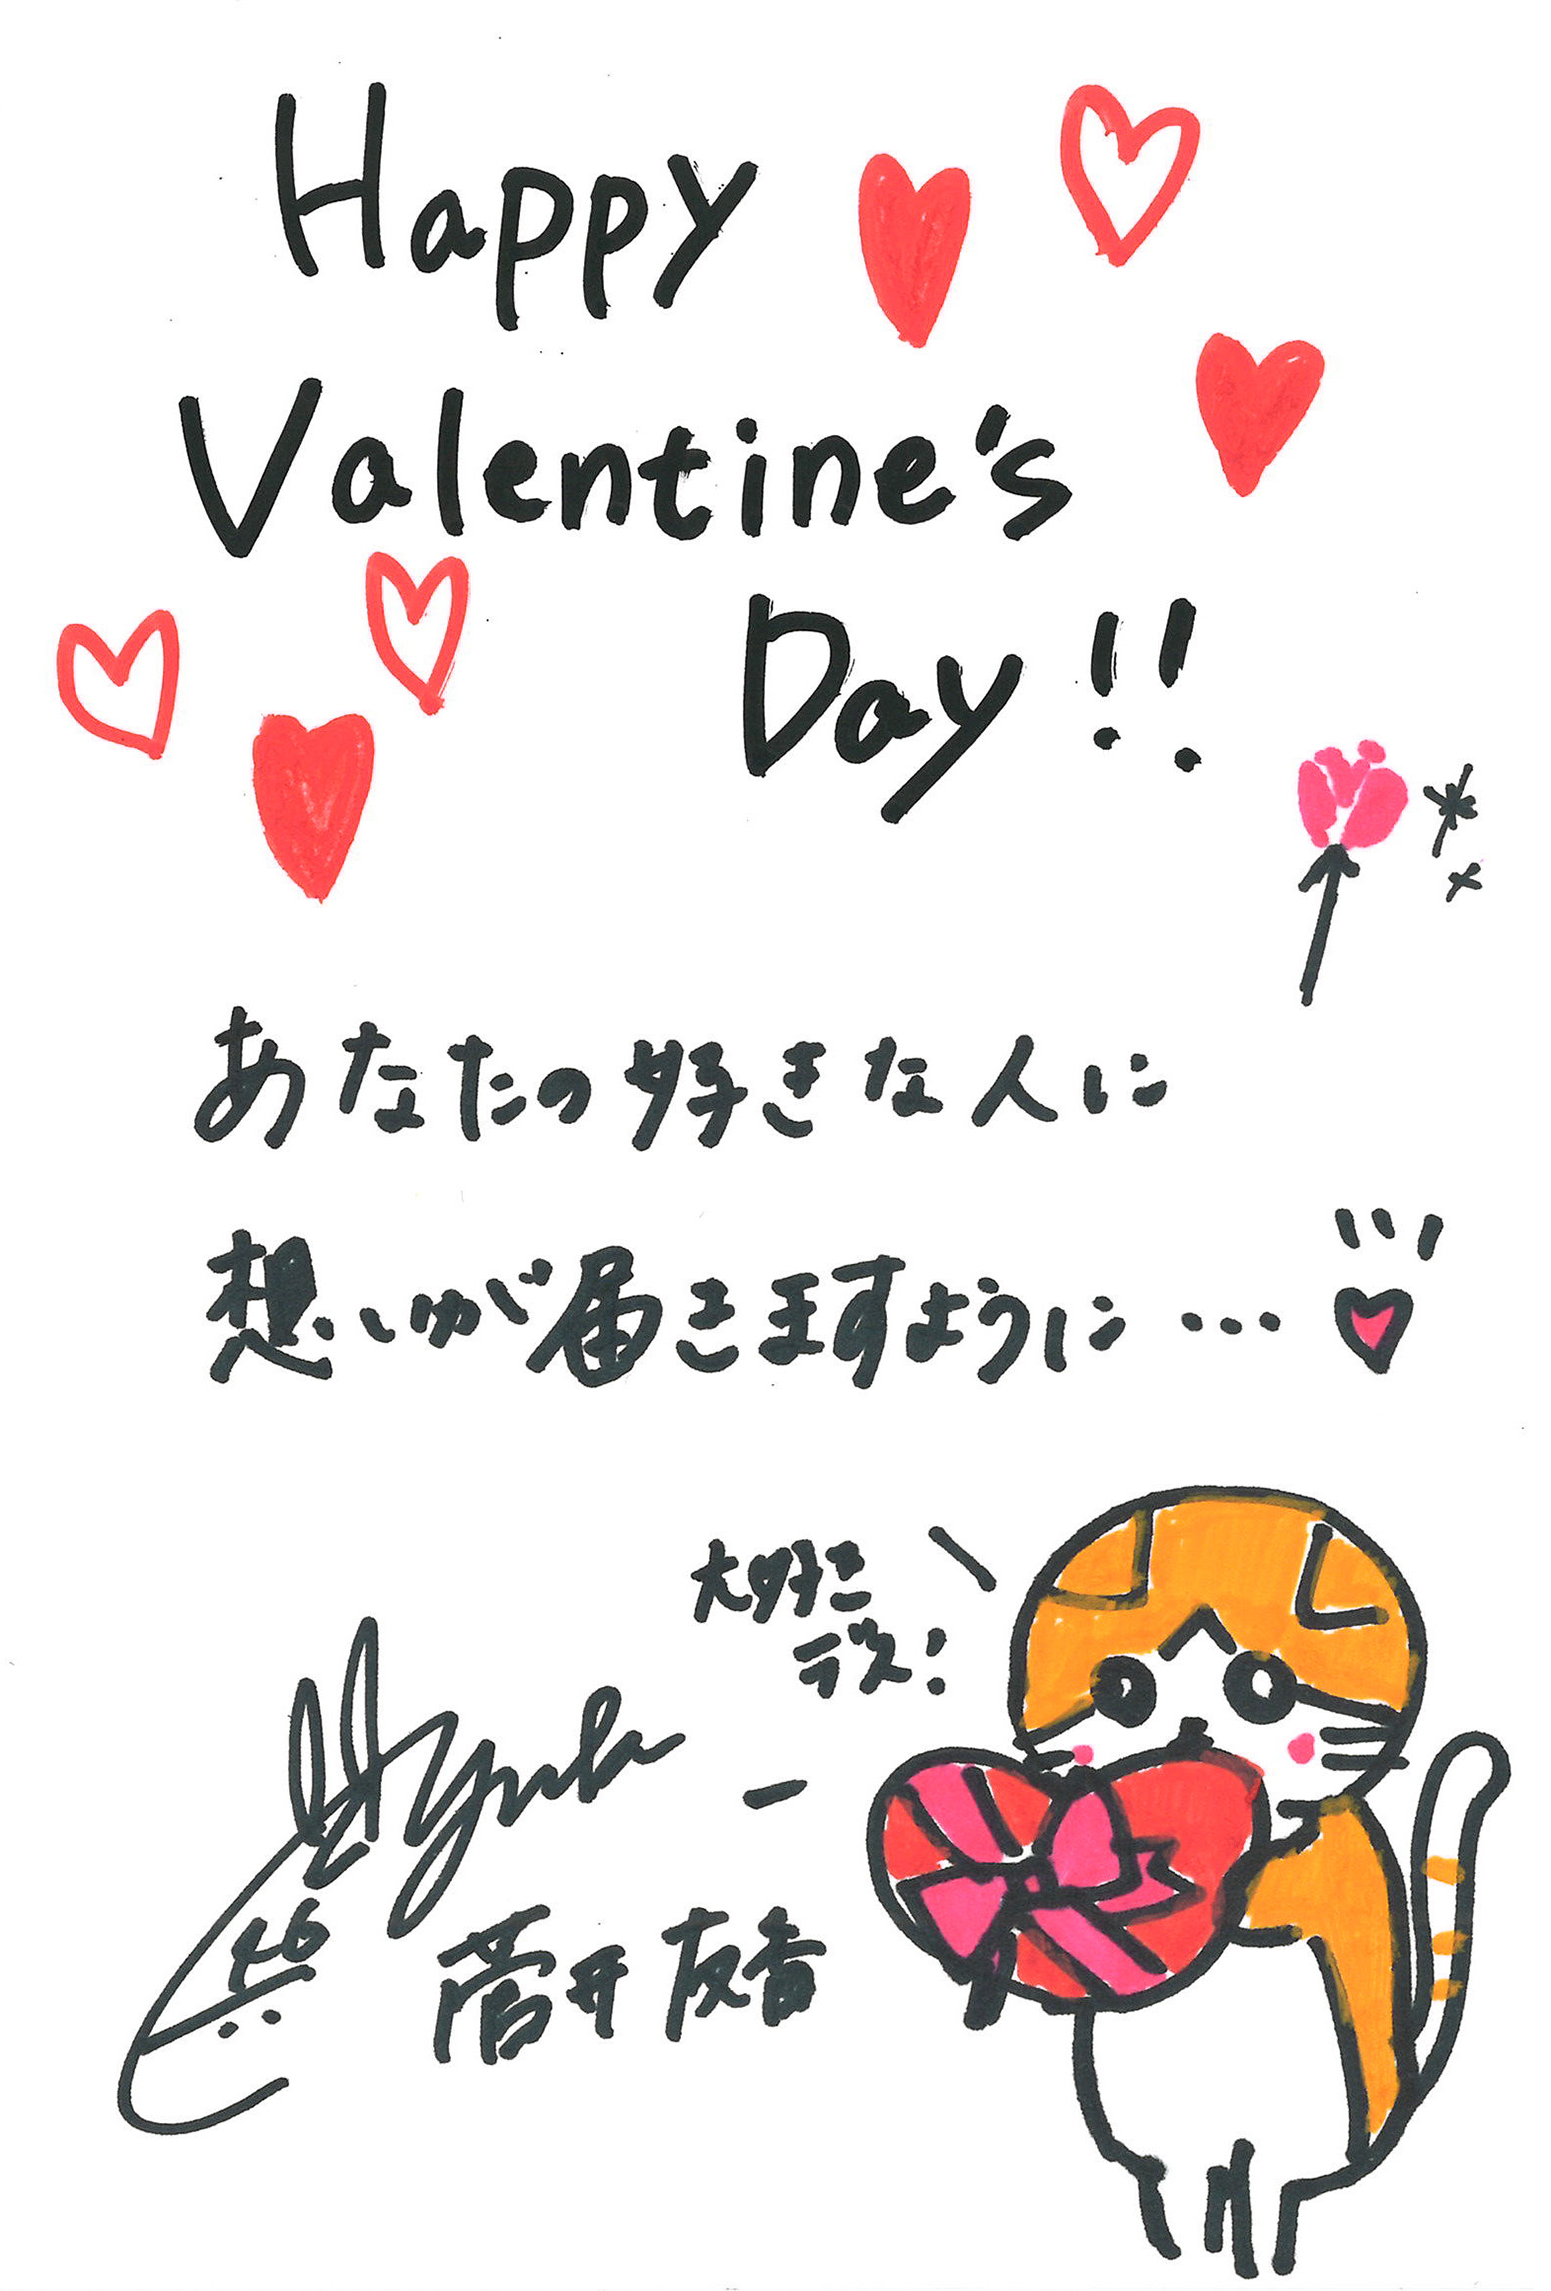 Happy
Valentine's
Day!!
あなたの好きな人に
想いが届きますように…
大好き
デス!
Yuuka
46
菅井友香